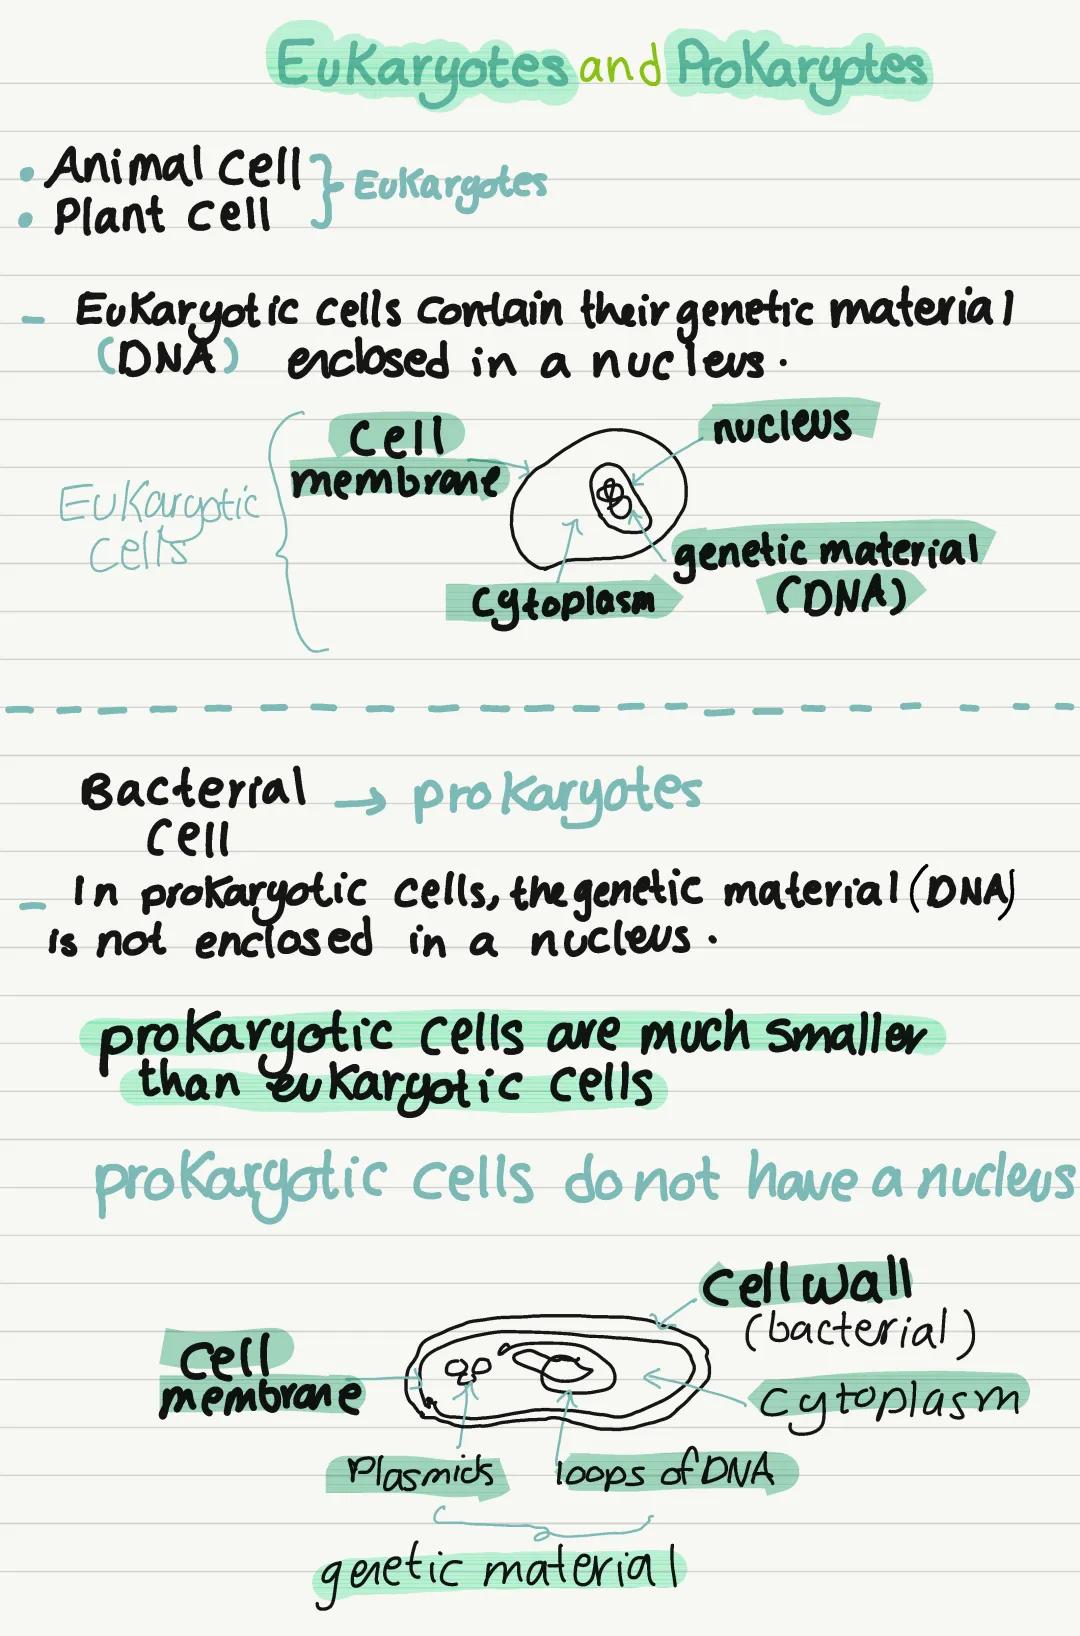 Eukaryotes and Prokaryotes
• Animal cell } Eukaryotes
• Plant cell
- Eukaryotic cells contain their genetic material
(DNA) enclosed in a nucleus.
Cell
membrane
nucleus
Eukaryotic
cells
genetic material
(DNA)
cytoplasm
Bacterial → prokaryotes
Cell
- In prokaryotic cells, the genetic material (DNA)
is not enclosed in a nucleus.
prokaryotic cells are much smaller
than eukaryotic cells
prokaryotic cells do not have a nucleus
Cell wall
(bacterial)
Cell
membrane
cytoplasm
Plasmids
loops of DNA
genetic material